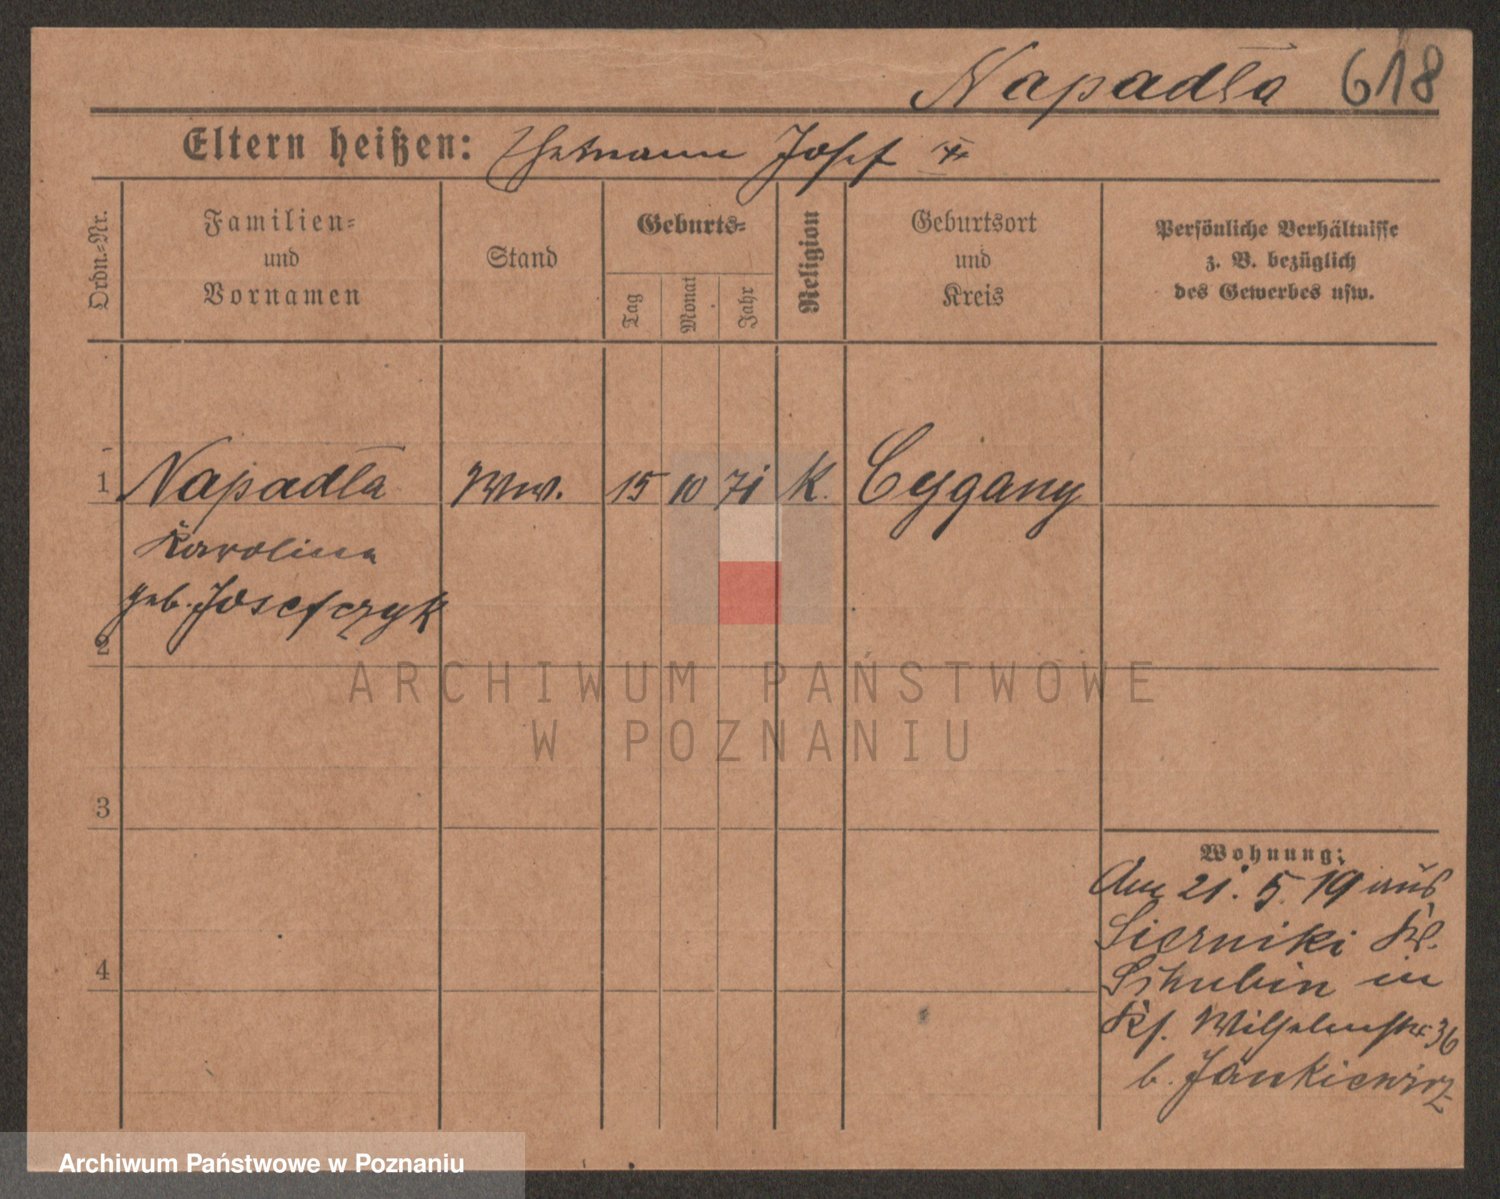 Napadła 618
Eltern heißen: Ehemann Josef
Ordn.=Nr.
Familien=
und
Vornamen
Stand
Geburts=
Tag
Monat
Jahr
Religion
Geburtsort
und
Kreis
Persönliche Verhältnisse
z. B. bezüglich
des Gewerbes usw.
1 Napadła Ww. 15 10 71 K. Cygany
Karolina
geb. Josefczyk
2
3
4
Wohnung:
Am 21. 5. 19 aus
Sierniki Kr.
Schubin in
Wilhelmstr. 36
b. Jankiewicz
ARCHIWUM PAŃSTWOWE
W POZNANIU
Archiwum Państwowe w Poznaniu